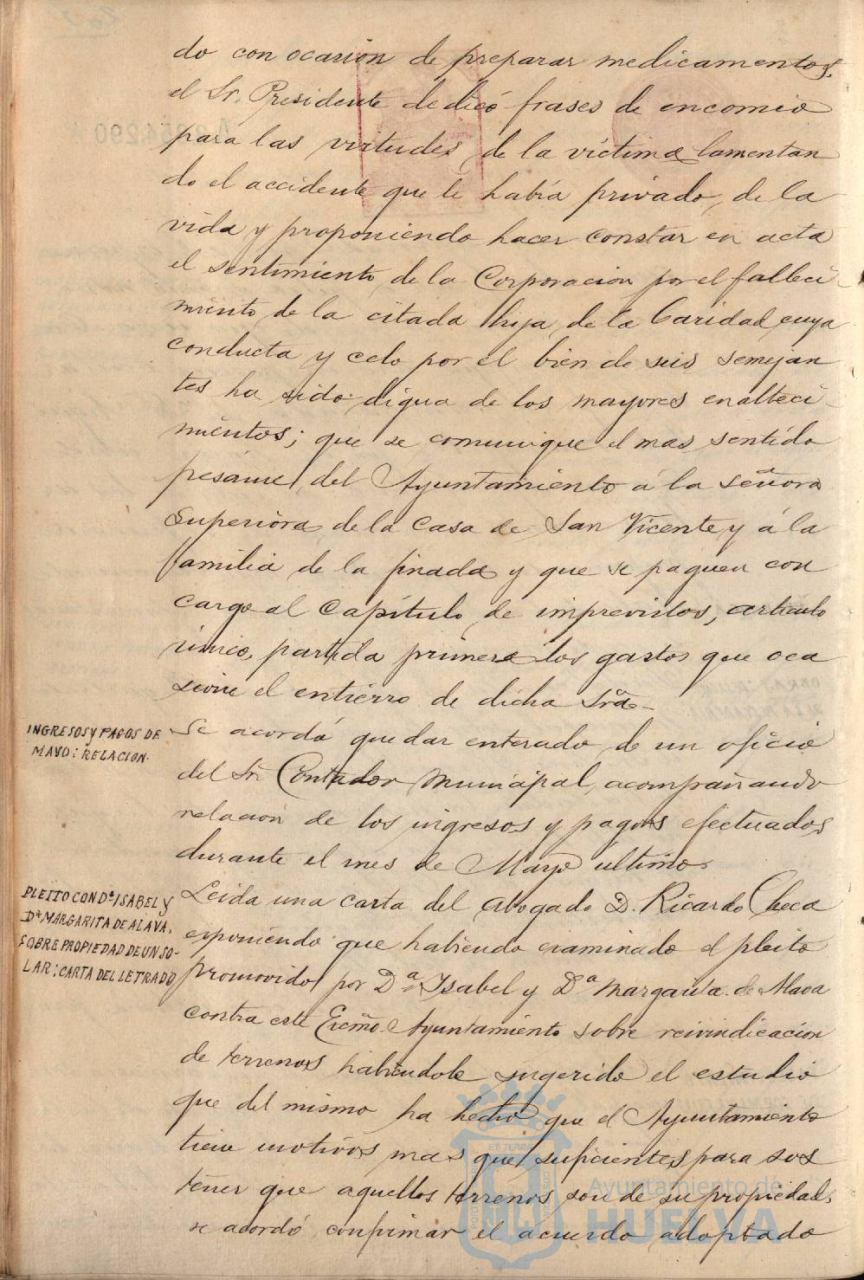 do con ocasión de preparar medicamentos,
el Sr. Presidente dedicó frases de encomio
para las virtudes de la víctima lamentan
do el accidente que le había privado de la
vida y proponiendo hacer constar en acta
el sentimiento de la Corporacion por el falleci-
miento de la citada hija de la Caridad cuya
conducta y celo por el bien de sus semejan
tes ha sido digna de los mayores enalteci-
mientos; que se comunique el mas sentido
pésame del Ayuntamiento á la señora
Superiora de la Casa de San Vicente y á la
familia de la finada y que se paguen con
cargo al Capítulo de imprevistos, artículo
único, partida primera los gastos que oca
sione el entierro de dicha Sra.-
INGRESOS Y PAGOS DE
MAYO: RELACION.
Se acordó quedar enterado de un oficio
del Sr. Contador Municipal, acompañando
relacion de los ingresos y pagos efectuados
durante el mes de Mayo ultimo.
PLEITO CON Dª ISABEL Y
Dª MARGARITA DE ALAVA,
SOBRE PROPIEDAD DE UN SO-
LAR: CARTA DEL LETRADO
Leida una carta del abogado D. Ricardo Checa
exponiendo que habiendo examinado el pleito
promovido por D.ª Isabel y D.ª Margarita de Alava
contra este Excmo. Ayuntamiento sobre reivindicacion
de terrenos habiendole sugerido el estudio
que del mismo ha hecho que el Ayuntamiento
tiene motivos mas que suficientes para sos
tener que aquellos terrenos son de su propiedad,
se acordó confirmar el acuerdo adoptado
Ayuntamiento de
HUELVA